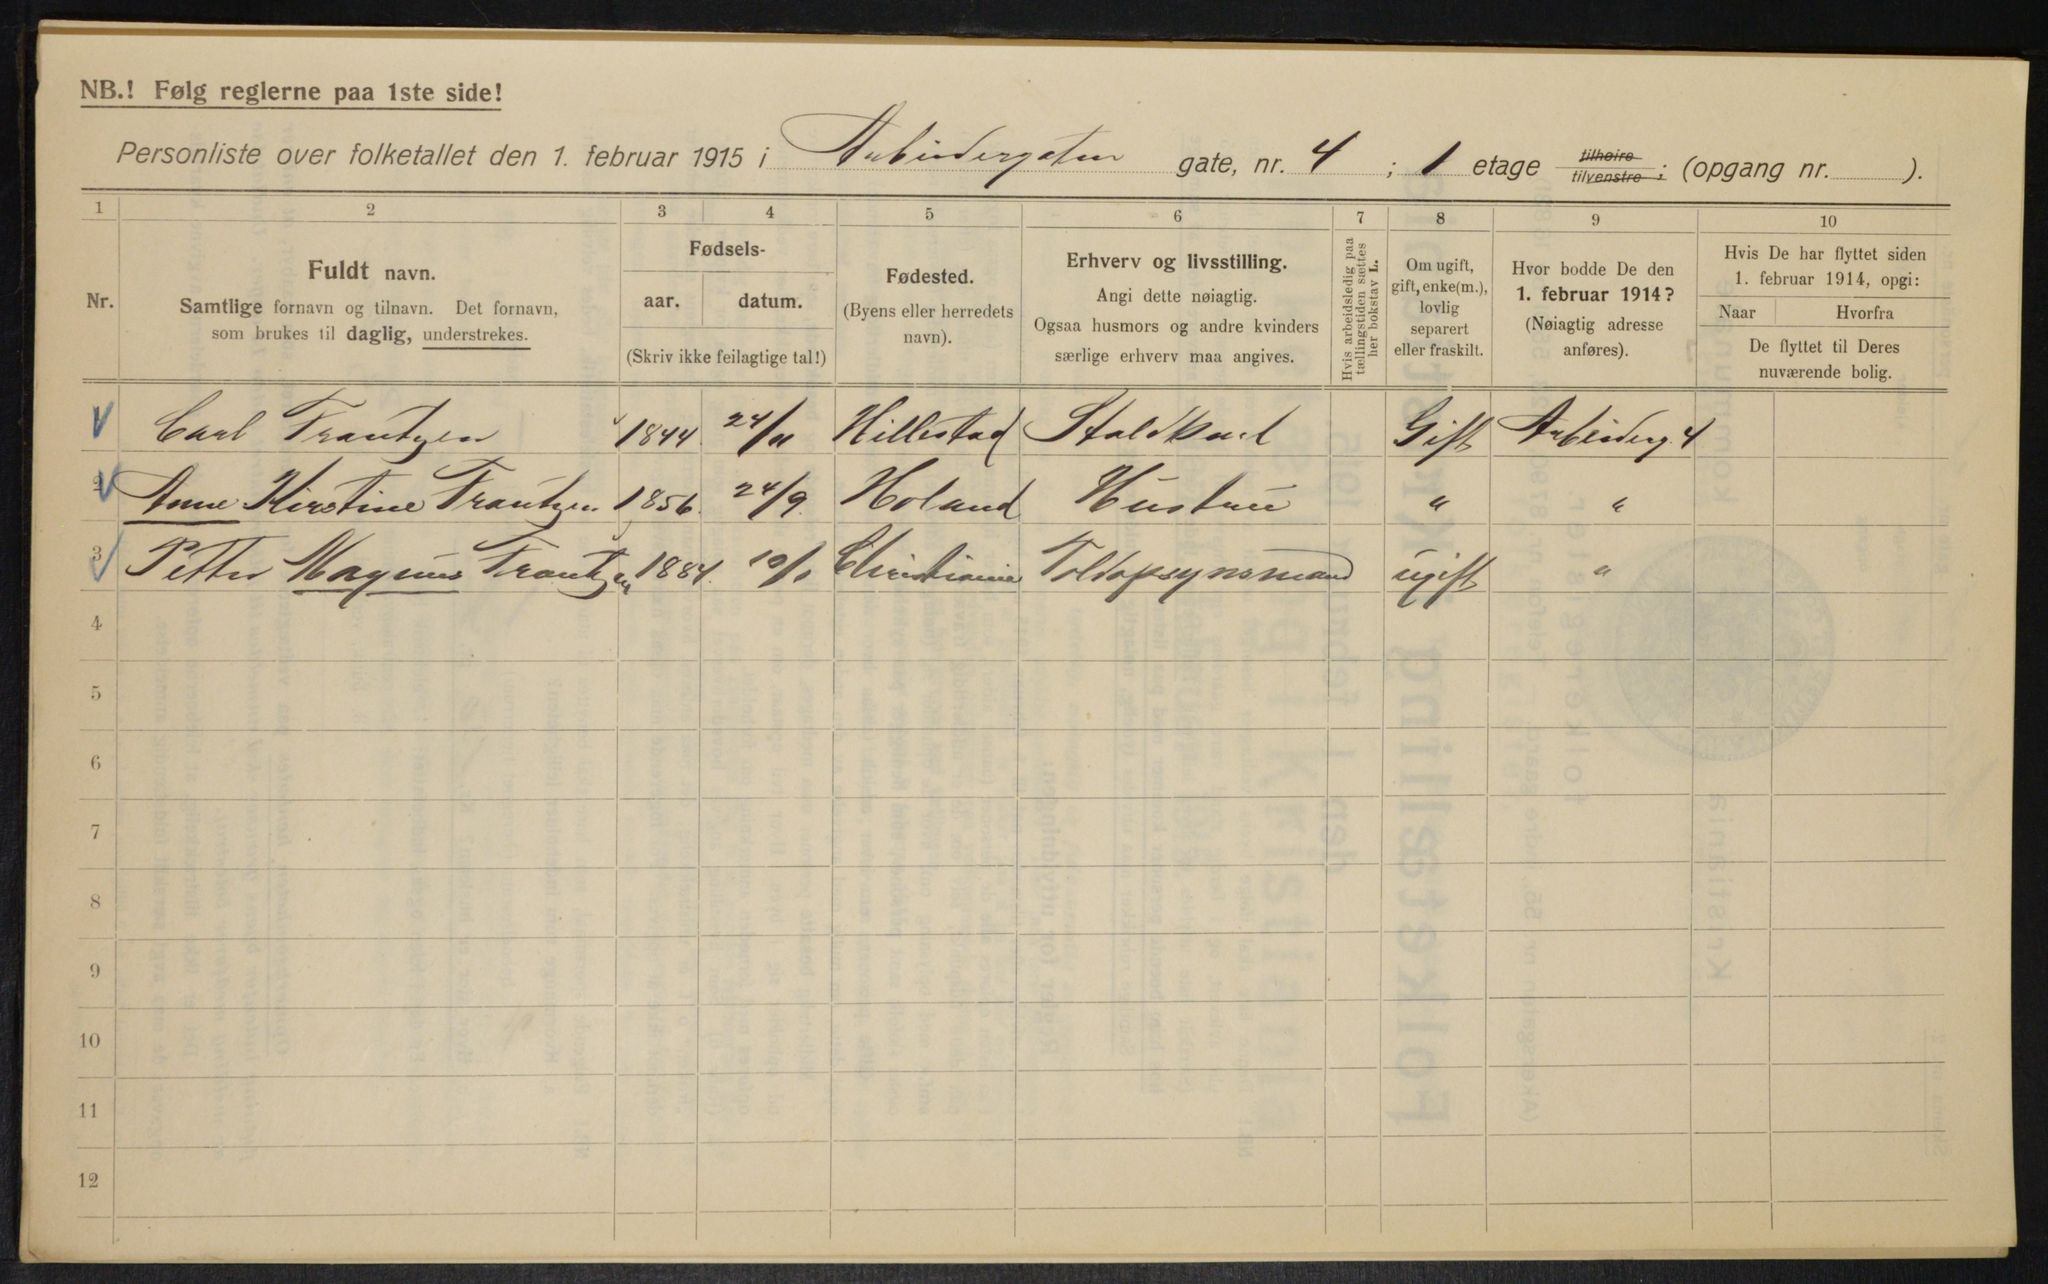 NB.! Følg reglerne paa 1ste side!
Personliste over folketallet den 1. februar 1915 i Arbeidergaten gate, nr. 4 ; 1 etage tilhøire tilvenstre ; (opgang nr. ).
1 2 3 4 5 6 7 8 9 10
Nr.
Fuldt navn.
Samtlige fornavn og tilnavn. Det fornavn,
som brukes til daglig, understrekes.
Fødsels-
aar. datum.
(Skriv ikke feilagtige tal!)
Fødested.
(Byens eller herredets
navn).
Erhverv og livsstilling.
Angi dette nøiagtig.
Ogsaa husmors og andre kvinders
særlige erhverv maa angives.
Hvis arbeidsledig paa
tællingstiden sættes
her bokstav L.
Om ugift,
gift, enke(m.),
lovlig
separert
eller fraskilt.
Hvor bodde De den
1. februar 1914?
(Nøiagtig adresse
anføres).
Hvis De har flyttet siden
1. februar 1914, opgi:
Naar Hvorfra
De flyttet til Deres
nuværende bolig.
Carl Frantzen 1844 24/11 Hillestad Staldkarl Gift Arbeiderg. 4
2 Anne Kirstine Frantzen 1856 24/9 Holand Hustru " "
3 Petter Magnus Frantzen 1884 Christiania Toldopsynsmand ugift "
4
5
6
7
8
9
10
11
12